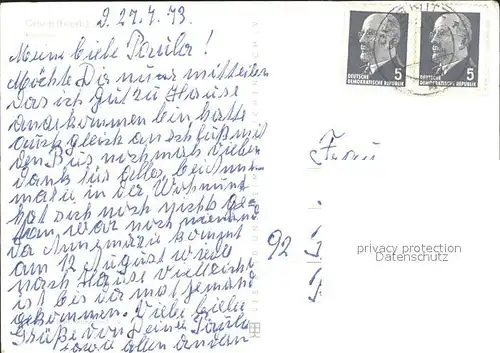 d. 27.7.73.
Meine liebe Paula!
Möchte Dir nur mitteilen
das ich gut zu Hause
angekommen bin, hatte
auch gleich anschluß mit
den Bus nochmals vielen
dank für alles, bei Anne-
marie in der Wohnung
hat sich noch nichts ge-
tan, war noch niemand
da Annemarie kommt
am 12 August wieder
nach Hause vielleicht
ist bis da mal jemand
gekommen. Viele liebe
Grüße von Deiner Paula
sowie allen andern
Frau
92
DEUTSCHE
DEMOKRATISCHE REPUBLIK
5
DEUTSCHE
DEMOKRATISCHE REPUBLIK
5
privacy protection
Datenschutz